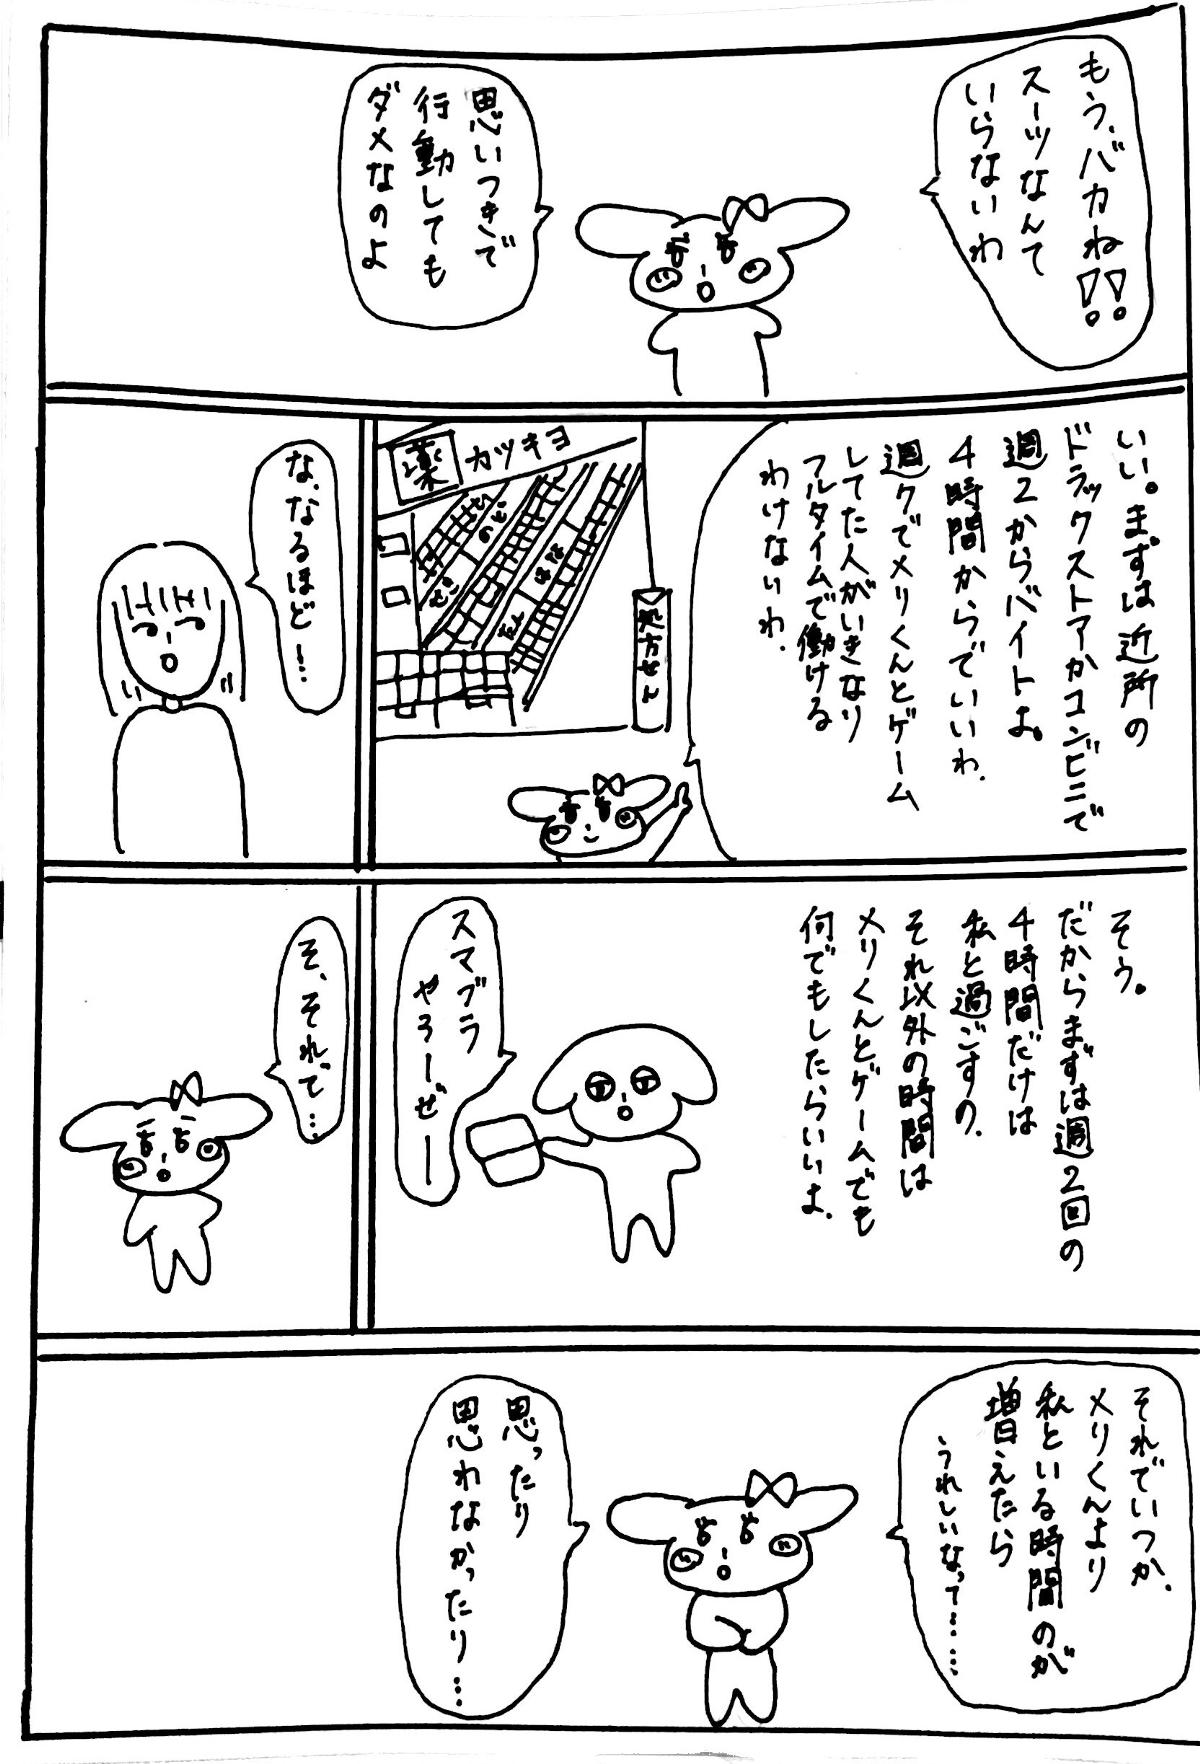 もう、バカね!!
スーツなんて
いらないわ
思いつきで
行動しても
ダメなのよ
いい。まずは近所の
ドラックストアかコンビニで
週2からバイトよ。
4時間からでいいわ。
週7でメリくんとゲーム
してた人がいきなり
フルタイムで働ける
わけないわ。
薬
カツキヨ
のど
処方せん
な、なるほど…!
そう。
だからまずは週2回の
4時間だけは
私と過ごすの。
それ以外の時間は
メリくんとゲームでも
何でもしたらいいよ。
スマブラ
やろーぜー
そ、それで…
それでいつか、
メリくんより
私といる時間のが
増えたら
うれしいなって……
思ったり
思わなかったり…